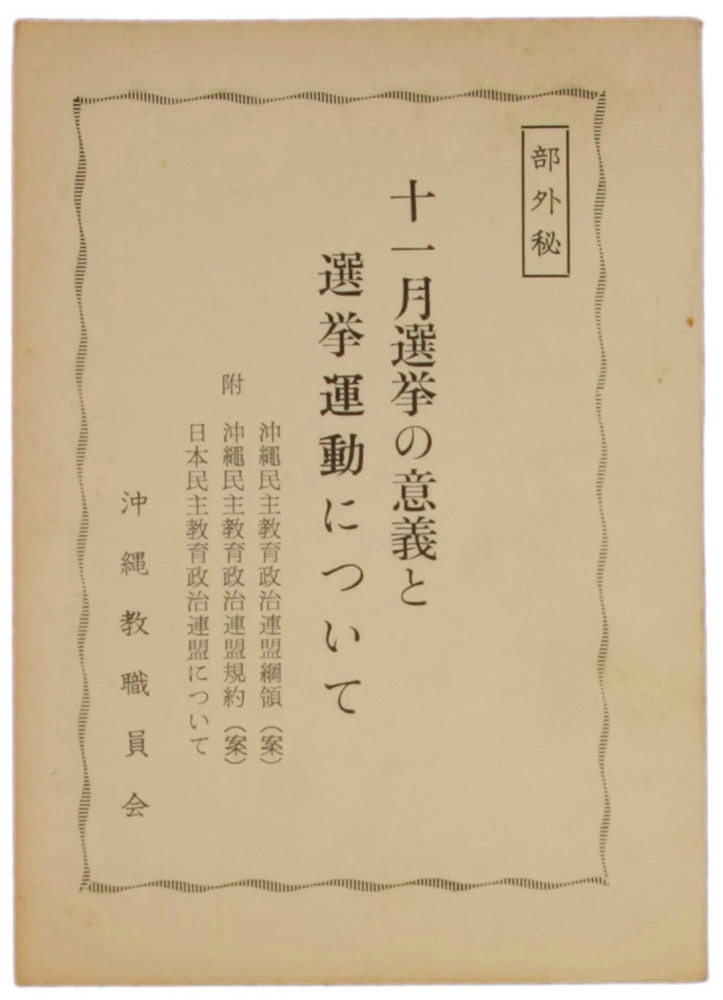 部外秘
十一月選挙の意義と
選挙運動について
附
沖繩民主教育政治連盟綱領（案）
沖繩民主教育政治連盟規約（案）
日本民主教育政治連盟について
沖縄教職員会